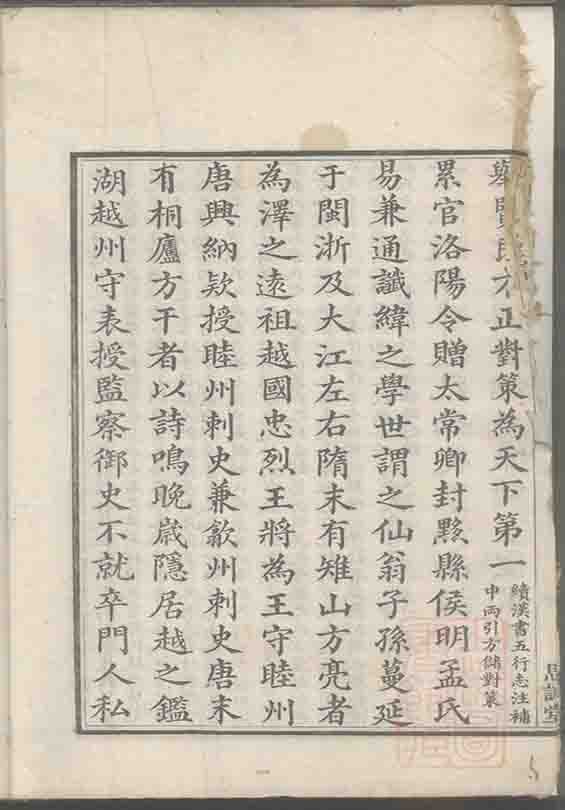 舉賢良方正對策為天下第一續漢書五行志注補
中兩引方儲對策
累官洛陽令贈太常卿封黟縣侯明孟氏
易兼通讖緯之學世謂之仙翁子孫蔓延
于閩浙及大江左右隋末有雉山方亮者
為澤之遠祖越國忠烈王將為王守睦州
唐興納欵授睦州刺史兼歙州刺史唐末
有桐廬方干者以詩鳴晚歲隱居越之鑑
湖越州守表授監察御史不就卒門人私